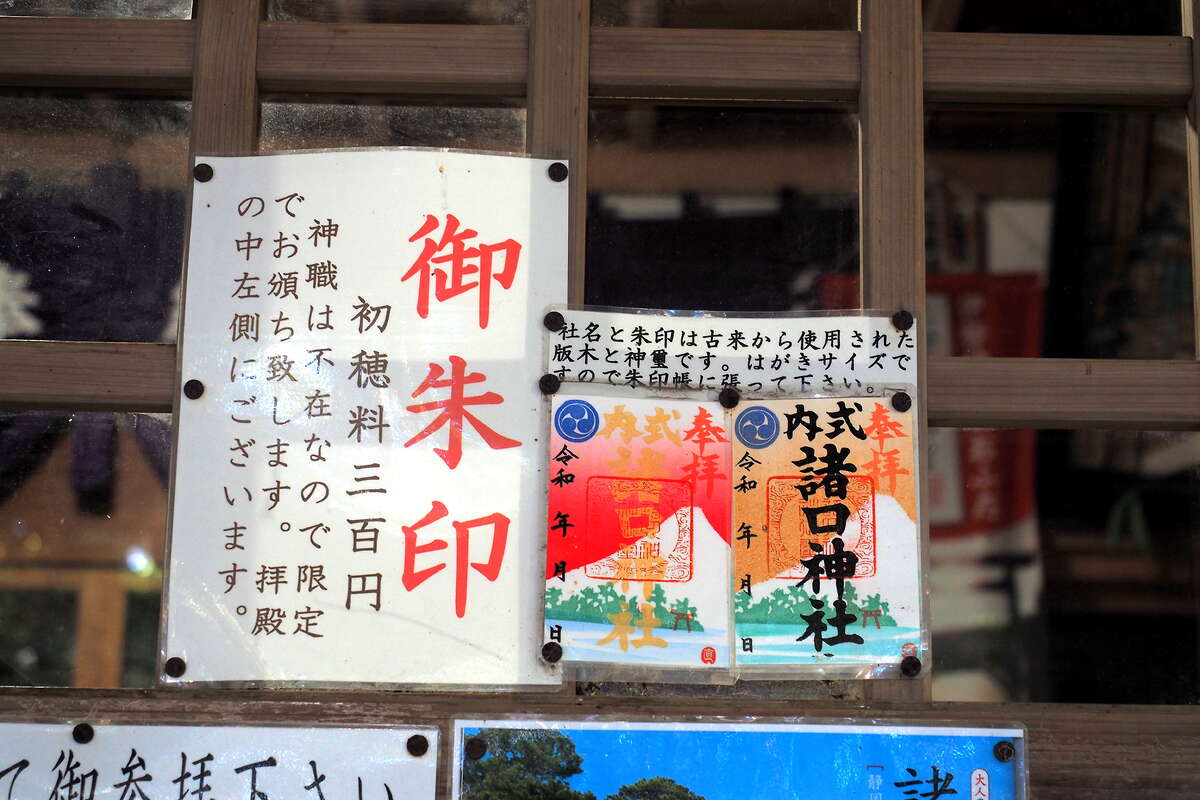 御朱印
初穂料三百円
神職は不在なので限定
でお頒ち致します。拝殿
の中左側にございます。
社名と朱印は古来から使用された
版木と神璽です。はがきサイズで
すので朱印帳に張って下さい。
奉拝
式内
諸口神社
令和 年 月 日
奉拝
式内
諸口神社
令和 年 月 日
て御参拝下さい
諸